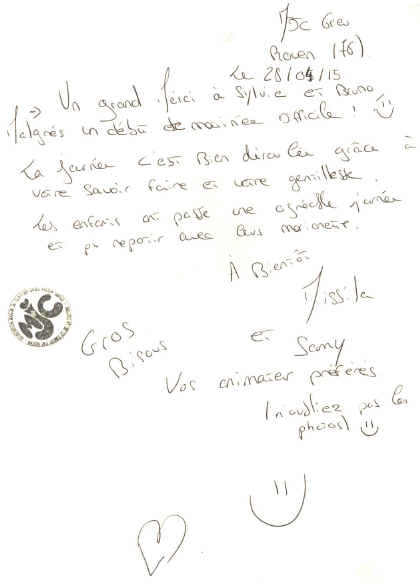 MJC Grieu
Rouen (76)
Le 28/04/15
→ Un grand Merci à Sylvie et Bruno
Malgrés un début de matinée difficile !
La journée c'est Bien déroulée grâce à
votre savoir faire et votre gentillesse.
Les enfants ont passé une agréable journée
et pu repartir avec leurs monument.
À Bientôt
Missila
et
Samy
MJC
Gros
Bisous
Vos animater préférés
(n'oubliez pas les
photos)